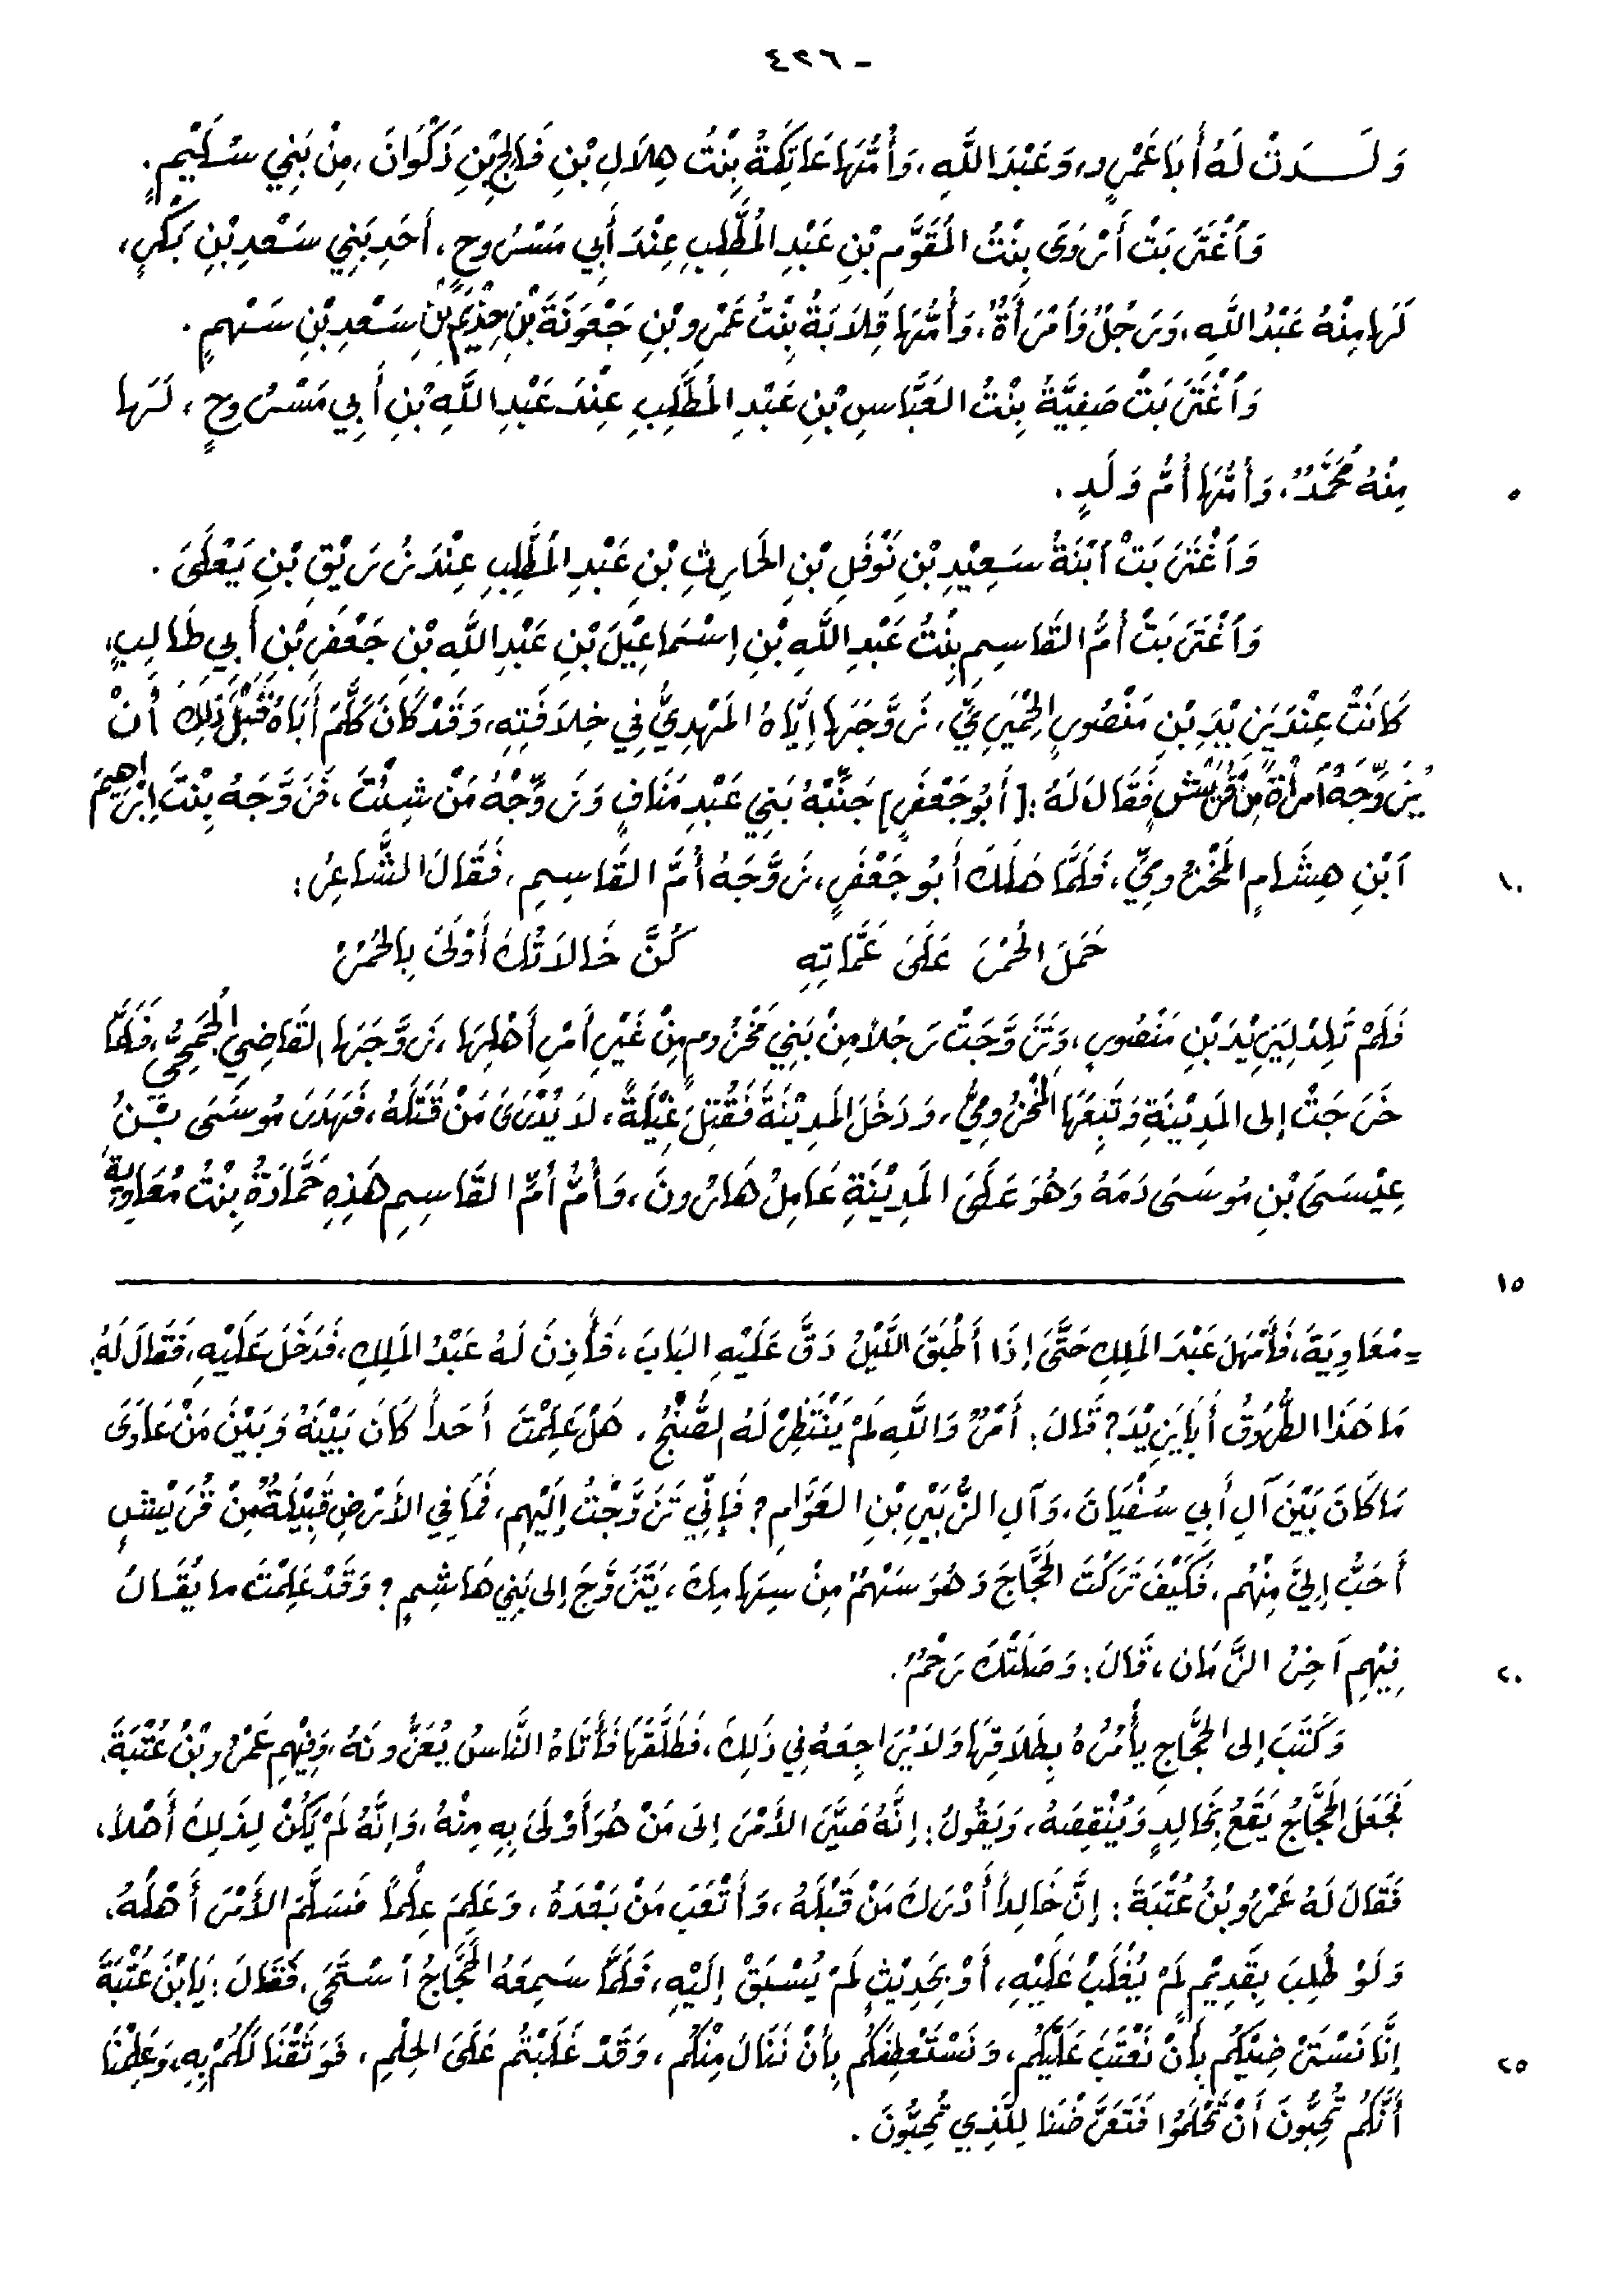 - ٤٢٦
وَلَـــدَتْ لَهُ أَبَا عَمْرٍو، وَعَبْدَ اللَّهِ، وَأُمُّهَا عَاتِكَةُ بِنْتُ هِلَالِ بْنِ فَالِجِ بْنِ ذَكْوَانَ، مِنْ بَنِي سُـلَيْمٍ.
وَٱغْتَرَبَتْ أَرْوَى بِنْتُ المُقَوَّمِ بْنِ عَبْدِ المُطَّلِبِ عِنْدَ أَبِي مَسْرُوحٍ، أَحَدِ بَنِي سَعْدِ بْنِ بَكْرٍ،
لَهَا مِنْهُ عَبْدُ اللَّهِ، وَرَجُلٌ وَٱمْرَأَةٌ، وَأُمُّهَا قِلَابَةُ بِنْتُ عَمْرِو بْنِ جَعْوَنَةَ بْنِ حِذْيَمِ بْنِ سَعْدِ بْنِ سَهْمٍ.
وَٱغْتَرَبَتْ صَفِيَّةُ بِنْتُ العَبَّاسِ بْنِ عَبْدِ المُطَّلِبِ عِنْدَ عَبْدِ اللَّهِ بْنِ أَبِي مَسْرُوحٍ، لَهَا
مِنْهُ مُحَمَّدٌ، وَأُمُّهَا أُمُّ وَلَدٍ.
٥
وَٱغْتَرَبَتْ ٱبْنَةُ سَعِيْدِ بْنِ نَوْفَلِ بْنِ الحَارِثِ بْنِ عَبْدِ المُطَّلِبِ عِنْدَ زُرَيْقِ بْنِ يَعْلَى.
وَٱغْتَرَبَتْ أُمُّ القَاسِمِ بِنْتُ عَبْدِ اللَّهِ بْنِ إِسْمَاعِيْلَ بْنِ عَبْدِ اللَّهِ بْنِ جَعْفَرِ بْنِ أَبِي طَالِبٍ،
كَانَتْ عِنْدَ يَزِيْدَ بْنِ مَنْصُورٍ الحِمْيَرِيِّ، زَوَّجَهَا إِيَّاهُ المَهْدِيُّ فِي خِلَافَتِهِ، وَقَدْ كَانَ كَلَّمَ أَبَاهُ قَبْلَ ذَلِكَ أَنْ
يُزَوِّجَهُ ٱمْرَأَةً مِنْ قُرَيْشٍ فَقَالَ لَهُ: [أَبُو جَعْفَرٍ] جَنِّبْهُ بَنِي عَبْدِ مَنَافٍ وَزَوِّجْهُ مَنْ شِئْتَ، فَزَوَّجَهُ بِنْتَ إِبْرَاهِيمَ
ٱبْنِ هِشَامٍ المَخْزُومِيِّ، فَلَمَّا هَلَكَ أَبُو جَعْفَرٍ، زَوَّجَهُ أُمَّ القَاسِمِ، فَقَالَ الشَّاعِرُ:
١٠
حَمَلَ الحُمْرَ عَلَى عَمَّاتِهِ كُنَّ خَالَاتُكَ أَوْلَى بِالحُمُرْ
فَلَمْ تَلِدْ لِيَزِيْدَ بْنِ مَنْصُورٍ، وَتَزَوَّجَتْ رَجُلاً مِنْ بَنِي مَخْزُومٍ مِنْ غَيْرِ أَمْرِ أَهْلِهَا، زَوَّجَهَا القَاضِي الجُمَحِيُّ، فَلَمَّا
خَرَجَتْ إلى المَدِيْنَةِ وَتَبِعَهَا المَخْزُومِيُّ، وَدَخَلَ المَدِيْنَةَ فَقُتِلَ غِيْلَةً، لَا يُدْرَى مَنْ قَتَلَهُ، فَهَدَرَ مُوسَى بْـنُ
عِيْسَى بْنِ مُوسَى دَمَهُ وَهُوَ عَلَى المَدِيْنَةِ عَامِلُ هَارُونَ، وَأُمُّ أُمِّ القَاسِمِ هَذِهِ حَمَّادَةُ بِنْتُ مُعَاوِيَةَ
١٥
= مُعَاوِيَةَ، فَأَمْهَلَ عَبْدَ المَلِكِ حَتَّى إِذَا أَطْبَقَ اللَّيْلُ دَقَّ عَلَيْهِ البَابَ، فَأَذِنَ لَهُ عَبْدُ المَلِكِ، فَدَخَلَ عَلَيْهِ، فَقَالَ لَهُ:
مَا هَذَا الطُّرُوقُ أَبَا يَزِيْدَ؟ قَالَ: أَمْرٌ وَاللَّهِ لَمْ يَنْتَظِرْ لَهُ الصُّبْحُ، هَلْ عَلِمْتَ أَحَداً كَانَ بَيْنَهُ وَبَيْنَ مَنْ عَادَى
مَا كَانَ بَيْنَ آلِ أَبِي سُفْيَانَ، وَآلِ الزُّبَيْرِ بْنِ العَوَّامِ؟ فَإِنِّي تَزَوَّجْتُ إِلَيْهِم، فَمَا فِي الأَرْضِ قَبِيْلَةٌ مِنْ قُرَيْشٍ
أَحَبُّ إِلَيَّ مِنْهُم، فَكَيْفَ تَرَكْتَ الحَجَّاجَ وَهُوَ سَهْمٌ مِنْ سِهَامِكَ، يَتَزَوَّجُ إلى بَنِي هَاشِمٍ؟ وَقَدْ عَلِمْتَ ما يُقَـالُ
فِيْهِم آخِرُ الزَّمَانِ، قَالَ: وَصَلَتْكَ رَحْمٌ.
٢٠
وَكَتَبَ إلى الحَجَّاجِ يَأْمُرُهُ بِطَلَاقِهَا وَلَا يُرَاجِعَهُ فِي ذَلِكَ، فَطَلَّقَهَا فَأَتَاهُ النَّاسُ يُعَزُّونَهُ، وَفِيْهِم عَمْرُو بْنُ عُتْبَةَ،
فَجَعَلَ الحَجَّاجُ يَقَعُ بِخَالِدٍ وَيُنْقِصَهُ، وَيَقُولُ: إِنَّهُ صَيَّرَ الأَمْرَ إِلَى مَنْ هُوَ أَوْلَى بِهِ مِنْهُ، وَإِنَّهُ لَمْ يَكُنْ لِذَلِكَ أَهْلاً،
فَقَالَ لَهُ عَمْرُو بْنُ عُتْبَةَ: إِنَّ خَالِداً أَدْرَكَ مَنْ قَبْلَهُ، وَأَتْعَبَ مَنْ بَعْدَهُ، وَعَلِمَ عِلْماً فَسَلَّمَ الأَمْرَ أَهْلَهُ،
وَلَوْ طُلِبَ بِقَدِيْمٍ لَمْ يُغْلَبْ عَلَيْهِ، أَوْ بِحَدِيْثٍ لَمْ يُسْبَقْ إِلَيْهِ، فَلَمَّا سَمِعَهُ الحَجَّاجُ ٱسْتَحَى، فَقَالَ: يَا بْنَ عُتْبَةَ
إِنَّا نَسْتَرْضِيْكُم بِأَنْ نَعْتَبَ عَلَيْكُم، وَنَسْتَعْطِفَكُم بِأَنْ نَنَالَ مِنْكُم، وَقَدْ غَلَبْتُم عَلَى الحِلْمِ، فَوَثَقْنَا لَكُمْ بِهِ، وَعَلِمْنَا
٢٥
أَنَّكُم تُحِبُّونَ أَنْ تَحْلَمُوا فَتَعَرَّضْنَا لِلَّذِي تُحِبُّونَ.